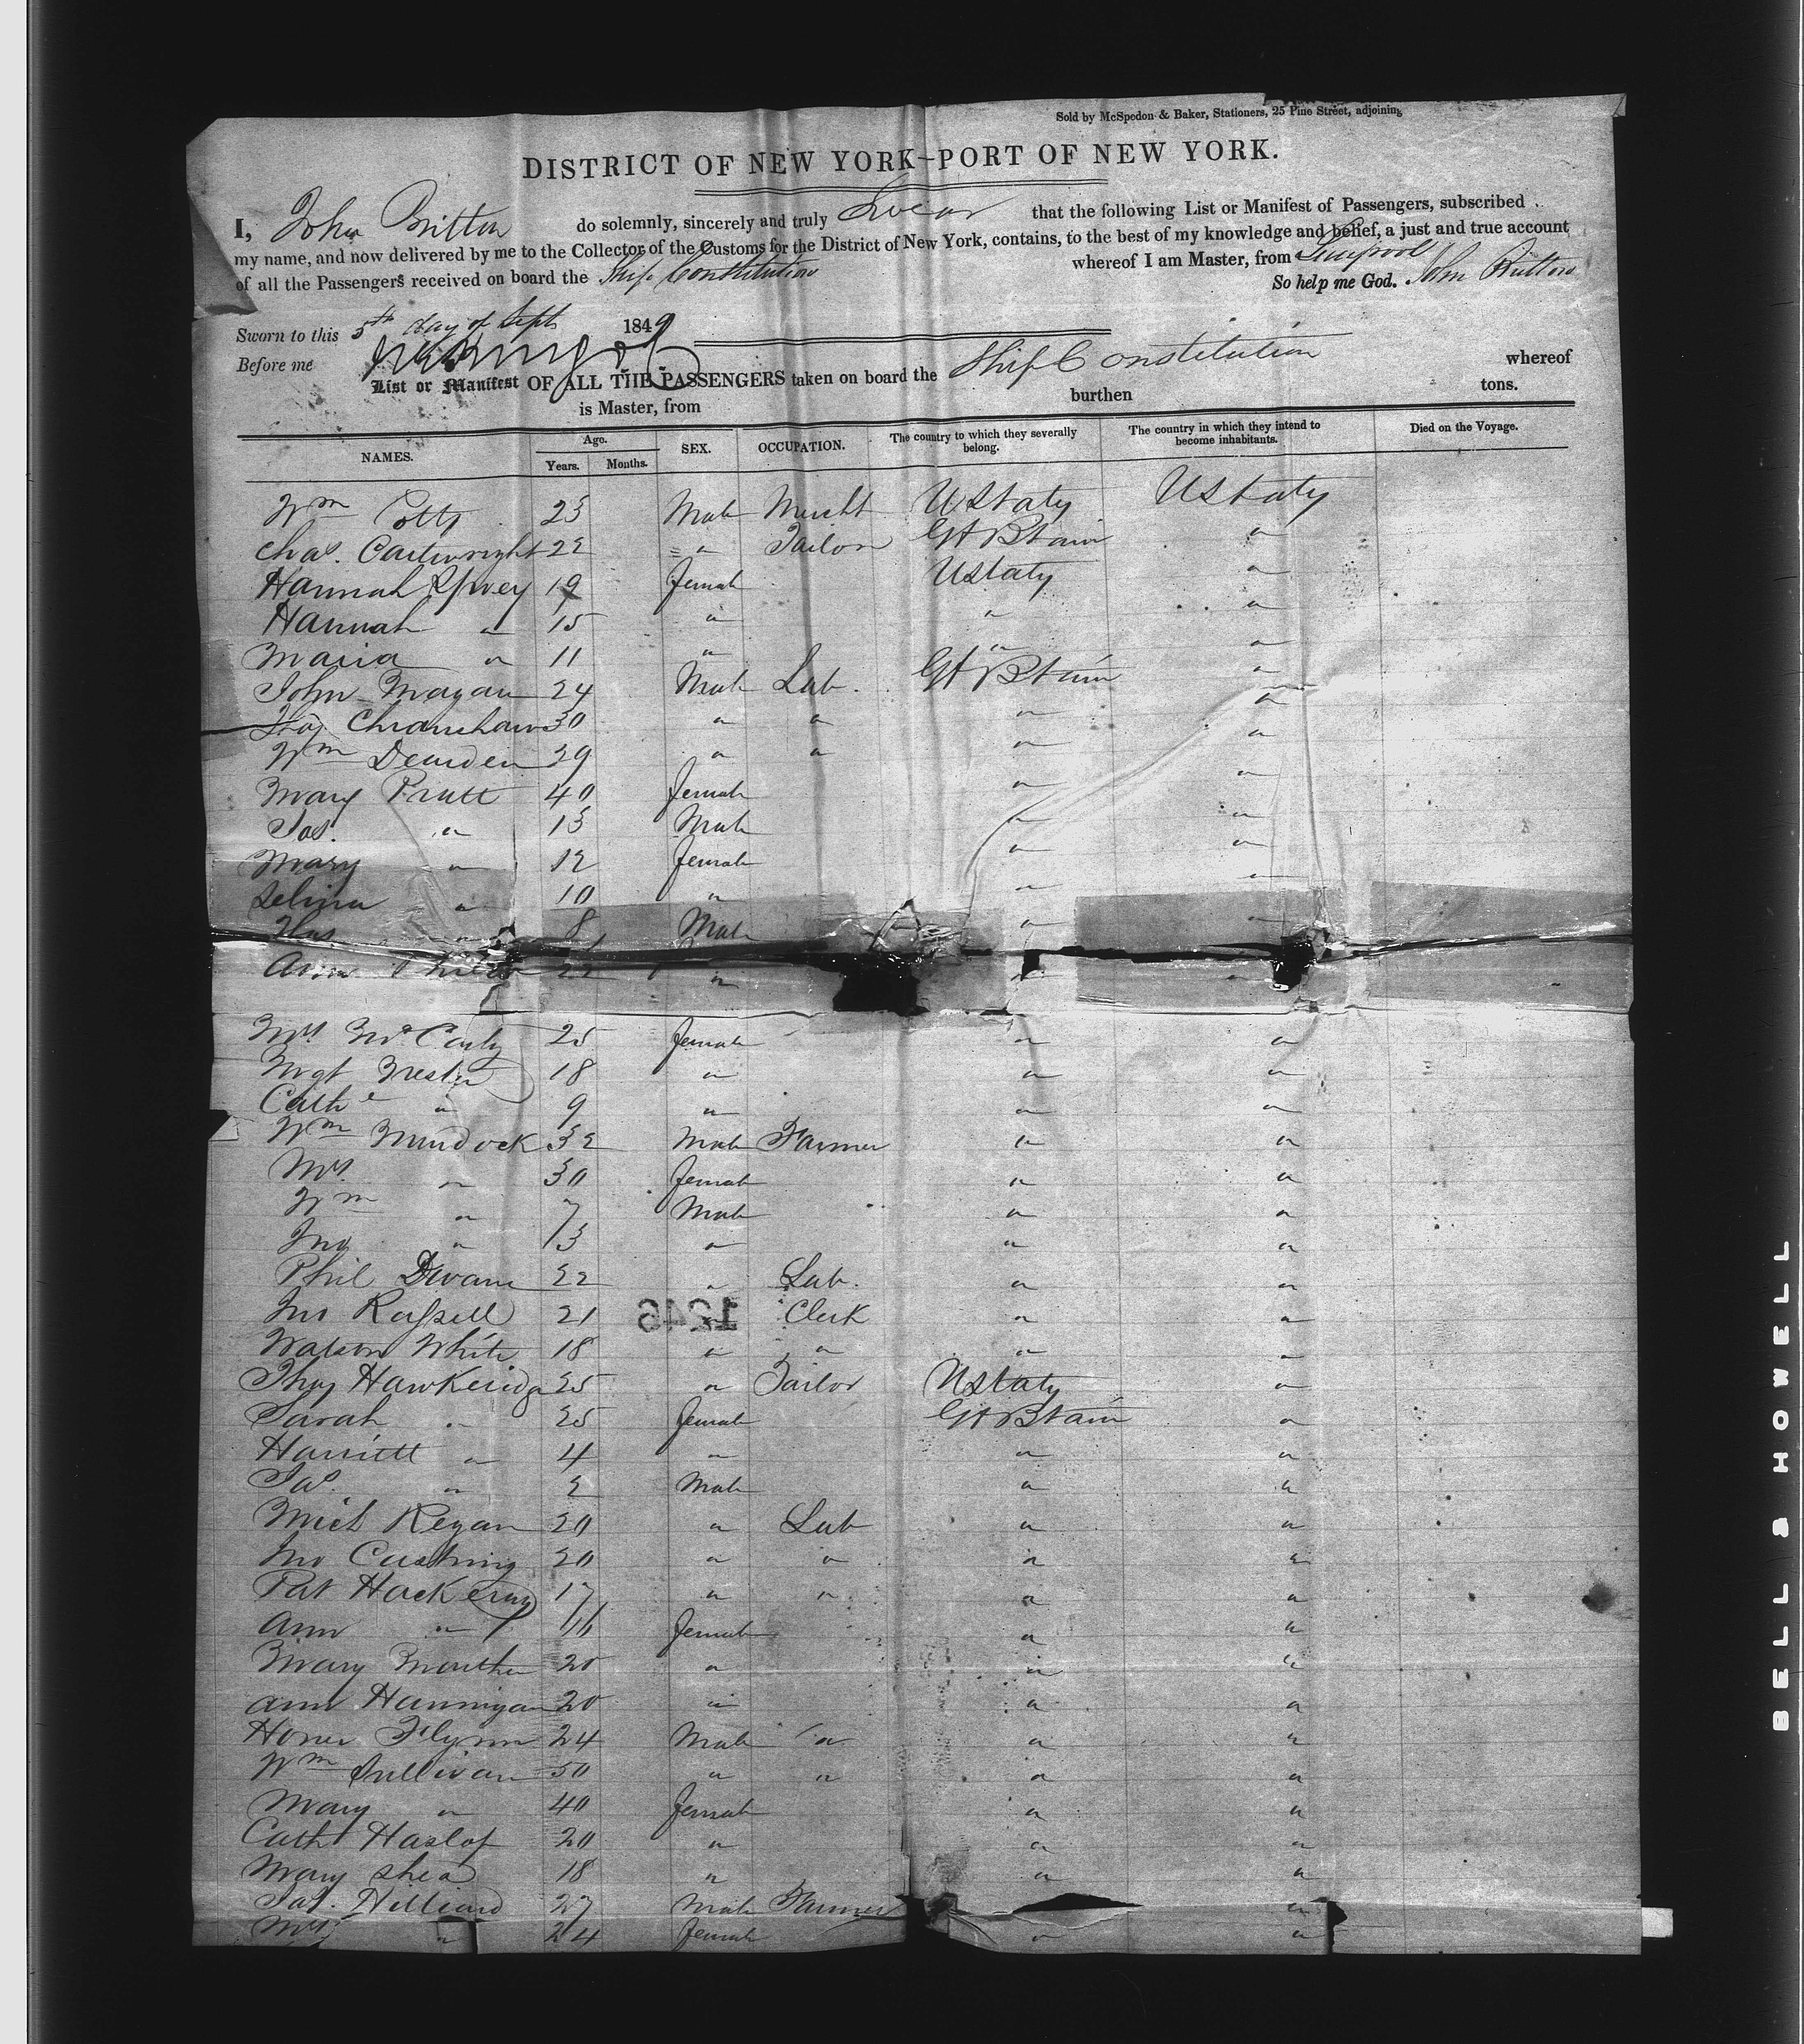 Sold by McSpedon & Baker, Stationers, 25 Pine Street, adjoining
DISTRICT OF NEW YORK-PORT OF NEW YORK.
I, John Britton do solemnly, sincerely and truly Swear that the following List or Manifest of Passengers, subscribed
my name, and now delivered by me to the Collector of the Customs for the District of New York, contains, to the best of my knowledge and belief, a just and true account
of all the Passengers received on board the Ship Constitution whereof I am Master, from Liverpool
So help me God. John Britton
Sworn to this 5th day of Sept 1849
Before me
List or Manifest OF ALL THE PASSENGERS taken on board the Ship Constitution whereof
is Master, from burthen tons.
NAMES. Age. Years. Months. SEX. OCCUPATION. The country to which they severally belong. The country in which they intend to become inhabitants. Died on the Voyage.
Wm 23 Male Mercht U States U States
Chas. Cartwright 22 " Tailor Gt Btain "
Hannah Spivey 19 Female U States "
Hannah " 15 " " "
Maria " 11 " " "
John Magan 24 Male Lab. Gt Btain "
30 " " " "
Wm Dearden 29 " " " "
Mary Pratt 40 Female " "
Jas. " 13 Male " "
Mary " 12 Female " "
Selina " 10 " " "
Thos " 8 Male " "
Ann " " "
Mrs McCarty 25 Female " "
Mgt 18 " " "
Cathe " 9 " " "
Wm Murdock 32 Male Farmer " "
Mrs " 30 Female " "
Wm " 7 Male " "
Jno " 3 " " "
Phil Dwane 22 " Lab. " "
Jno Russell 21 " Clerk " "
1246
Watson White 18 " " " "
Thos Hawkeridge 25 " Tailor U States "
Sarah " 25 Female Gt Btain "
Harriett " 4 " " "
Jas. " 2 Male " "
Mich Regan 20 " Lab " "
Jno Cushing 20 " " " "
Pat Hackeray 17 " " " "
Ann " 16 Female " "
Mary 20 " " "
Ann Hannigan 20 " " "
Honer Flynn 24 Male " " "
Wm Sullivan 50 " " " "
Mary " 40 Female " "
Cath Haslop 20 " " "
Mary Shea 18 " " "
Jas. Hilliard 27 Male Farmer "
Mrs " 24 Female " "
BELL & HOWELL